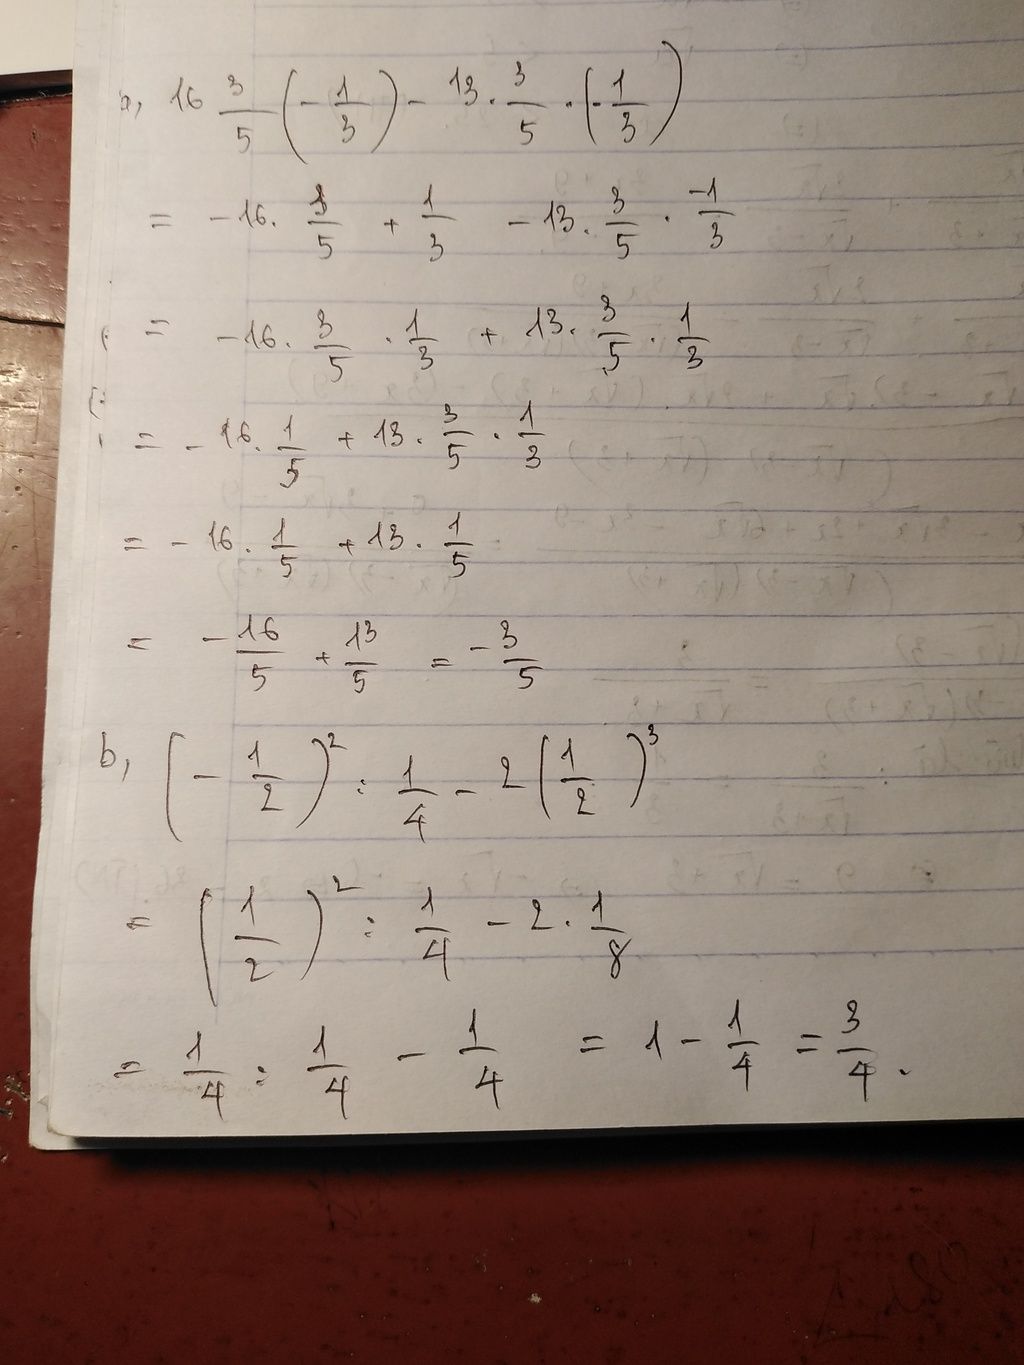 a, 16 3/5 (-1/3) - 13 · 3/5 · (-1/3)
= -16 · 3/5 + 1/3 - 13 · 3/5 · -1/3
= -16 · 3/5 · 1/3 + 13 · 3/5 · 1/3
= -16 · 1/5 + 13 · 3/5 · 1/3
= -16 · 1/5 + 13 · 1/5
= -16/5 + 13/5 = -3/5
b, (-1/2)² : 1/4 - 2(1/2)³
= (1/2)² : 1/4 - 2 · 1/8
= 1/4 : 1/4 - 1/4 = 1 - 1/4 = 3/4.